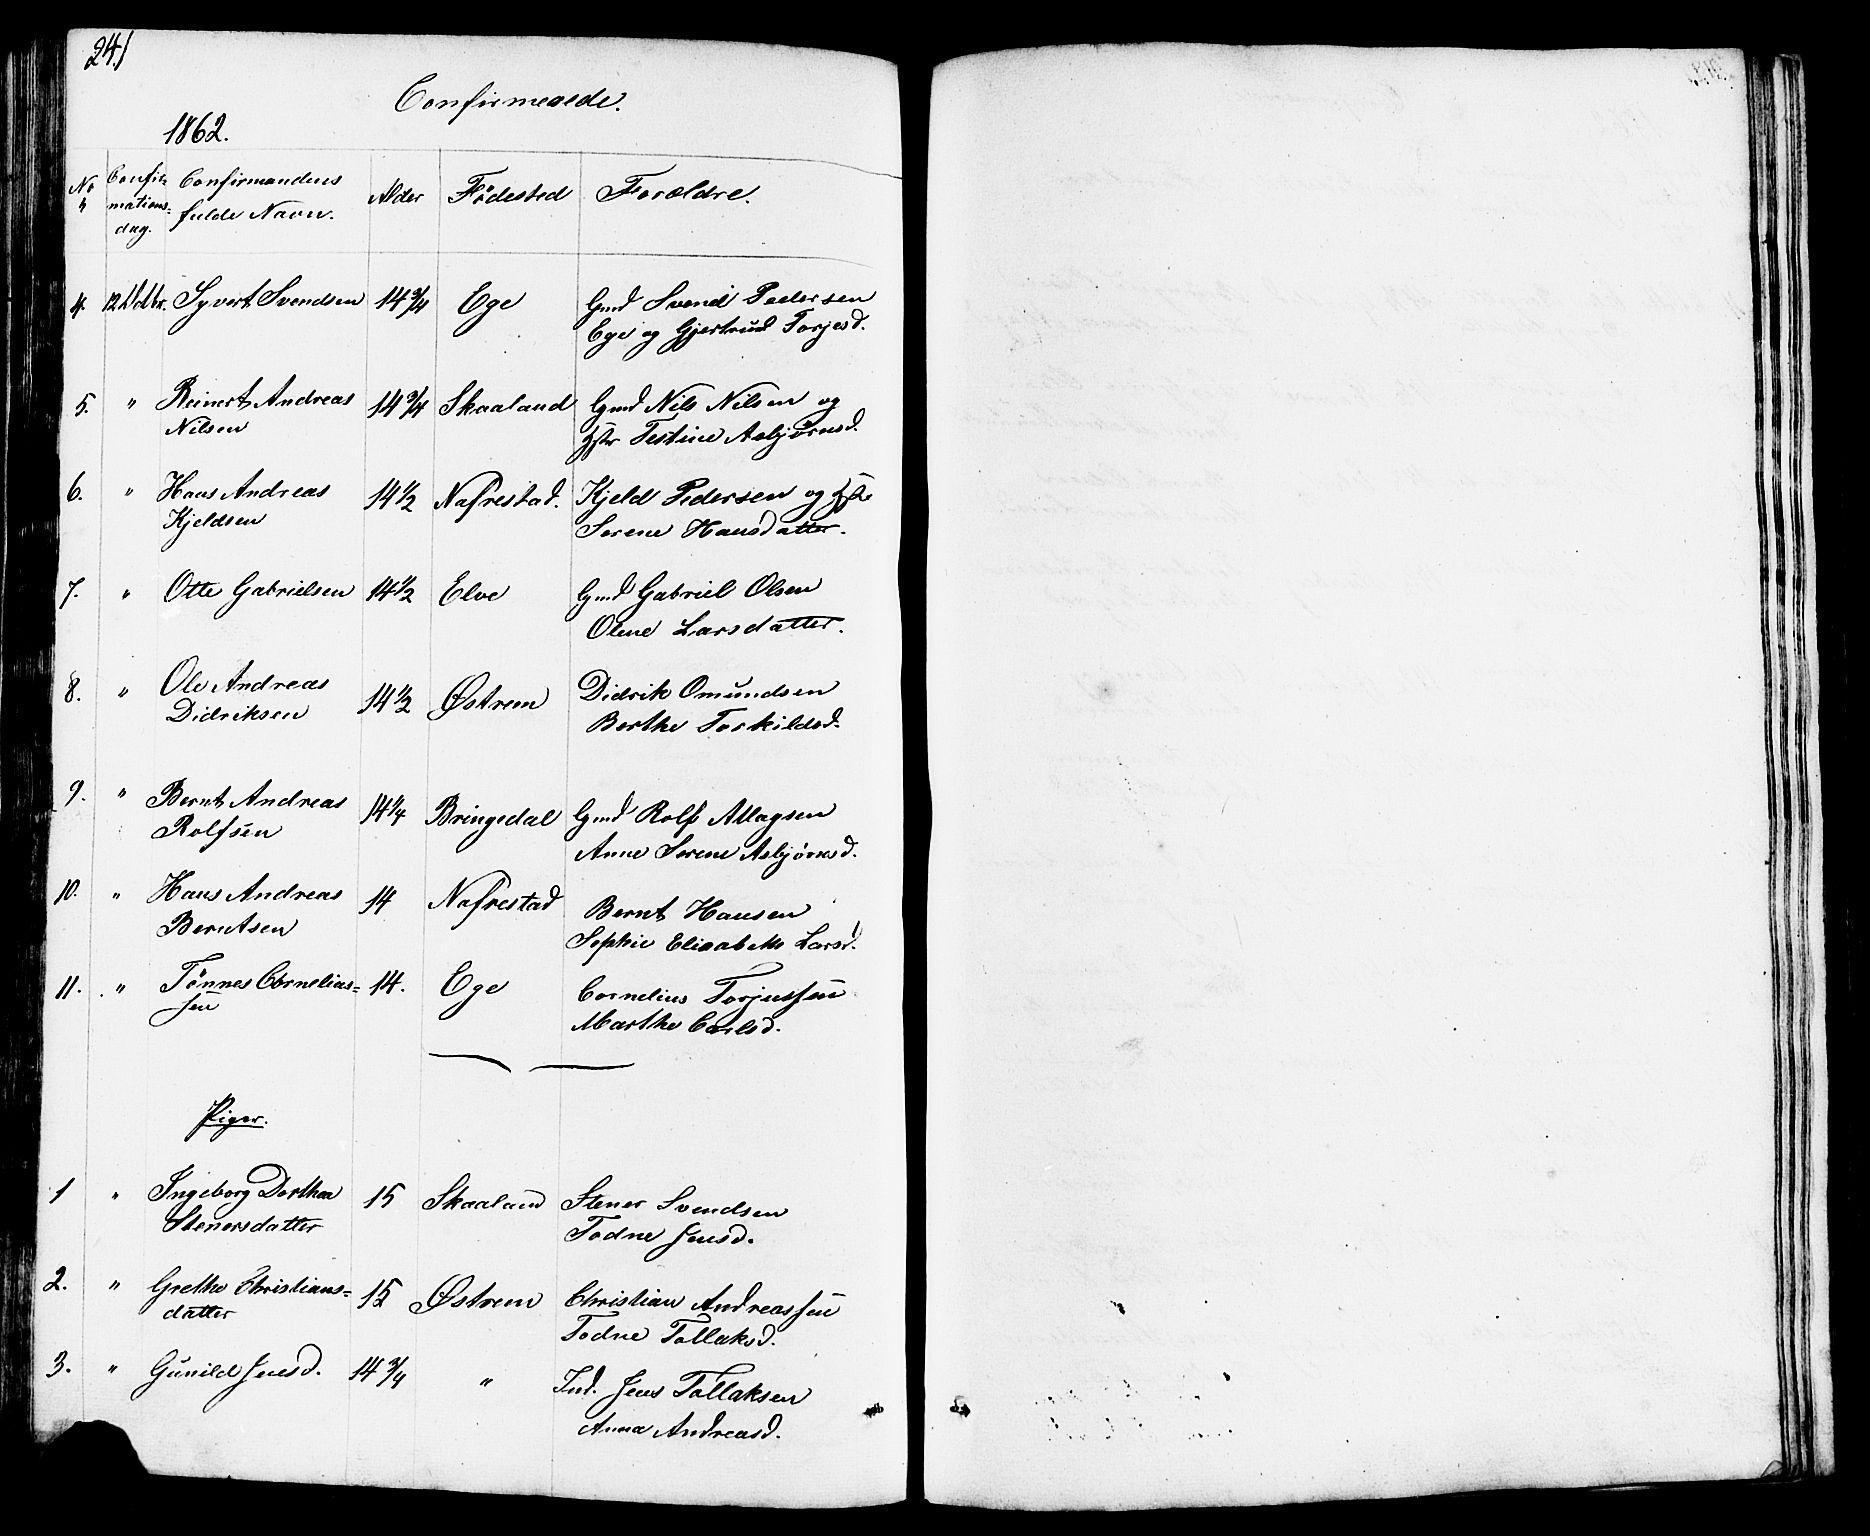 241
Confirmerede.
1862.
No
Confir-
mations-
dag.
Confirmandens
fulde Navn.
Alder
Födested
Forældre.
4. 12 Octbr. Syvert Svendsen 14 3/4 Ege Gmd Svend Pedersen
Ege og Gjertrud Torjesd.
5. " Reinert Andreas 14 3/4 Skaaland Gmd Nils Nilsen og
Nilsen Hstr Testine Asbjörnsd.
6. " Hans Andreas 14 1/2 Nafrestad. Kjeld Pedersen og Hstr
Kjeldsen Serene Hansdatter.
7. " Otte Gabrielsen 14 1/2 Elve Gmd Gabriel Olsen
Olene Larsdatter.
8. " Ole Andreas 14 1/2 Østrem Didrik Omundsen
Didriksen Berthe Torkildsd.
9. " Bernt Andreas 14 1/4 Bringedal Gmd Rolf Atlagsen
Rolfsen Anne Serene Asbjørnsd.
10. " Hans Andreas 14 Nafrestad Bernt Hansen
Berntsen Sophie Elisabeth Larsd.
11. " Tönnes Cornelias= 14. Ege Cornelius Torjussen
sen Marthe Carlsd.
Piger.
1 " Ingeborg Dorthea 15 Skaaland Stener Svendsen
Stenersdatter Todne Jensd.
2. " Grethe Christians= 15 Østrem Christian Andreassen
datter Todne Tollaksd.
3. " Gunild Jensd. 14 3/4 " Ind. Jens Tollaksen
Anna Andreasd.